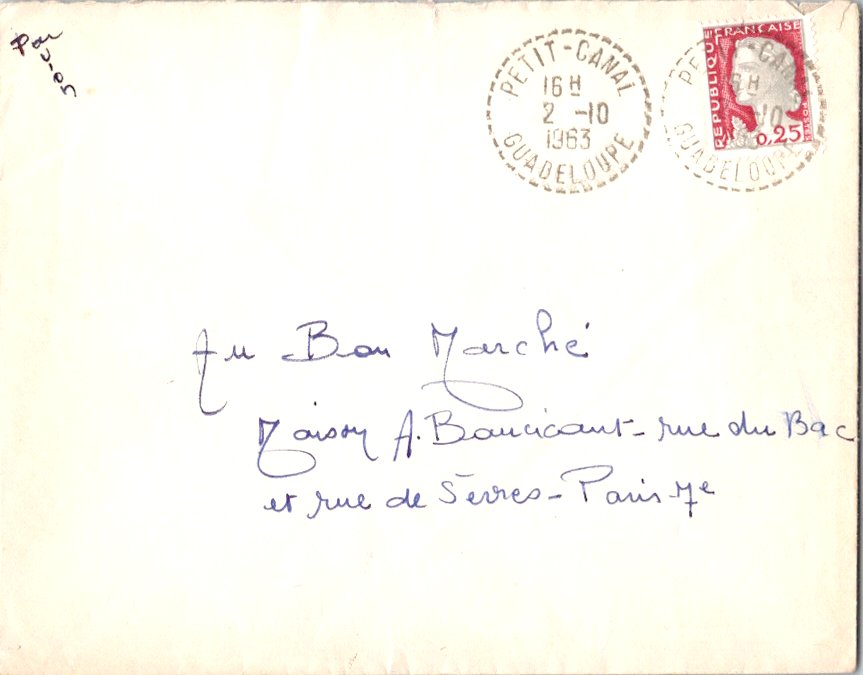 Par
PETIT-CANAL
16H
2 -10
1963
GUADELOUPE
REPUBLIQUE FRANÇAISE
0,25
POSTES
PETIT-CANAL
16H
2 -10
GUADELOUPE
Au Bon Marché
Maison A. Boucicaut - rue du Bac
et rue de Sèvres - Paris 7e